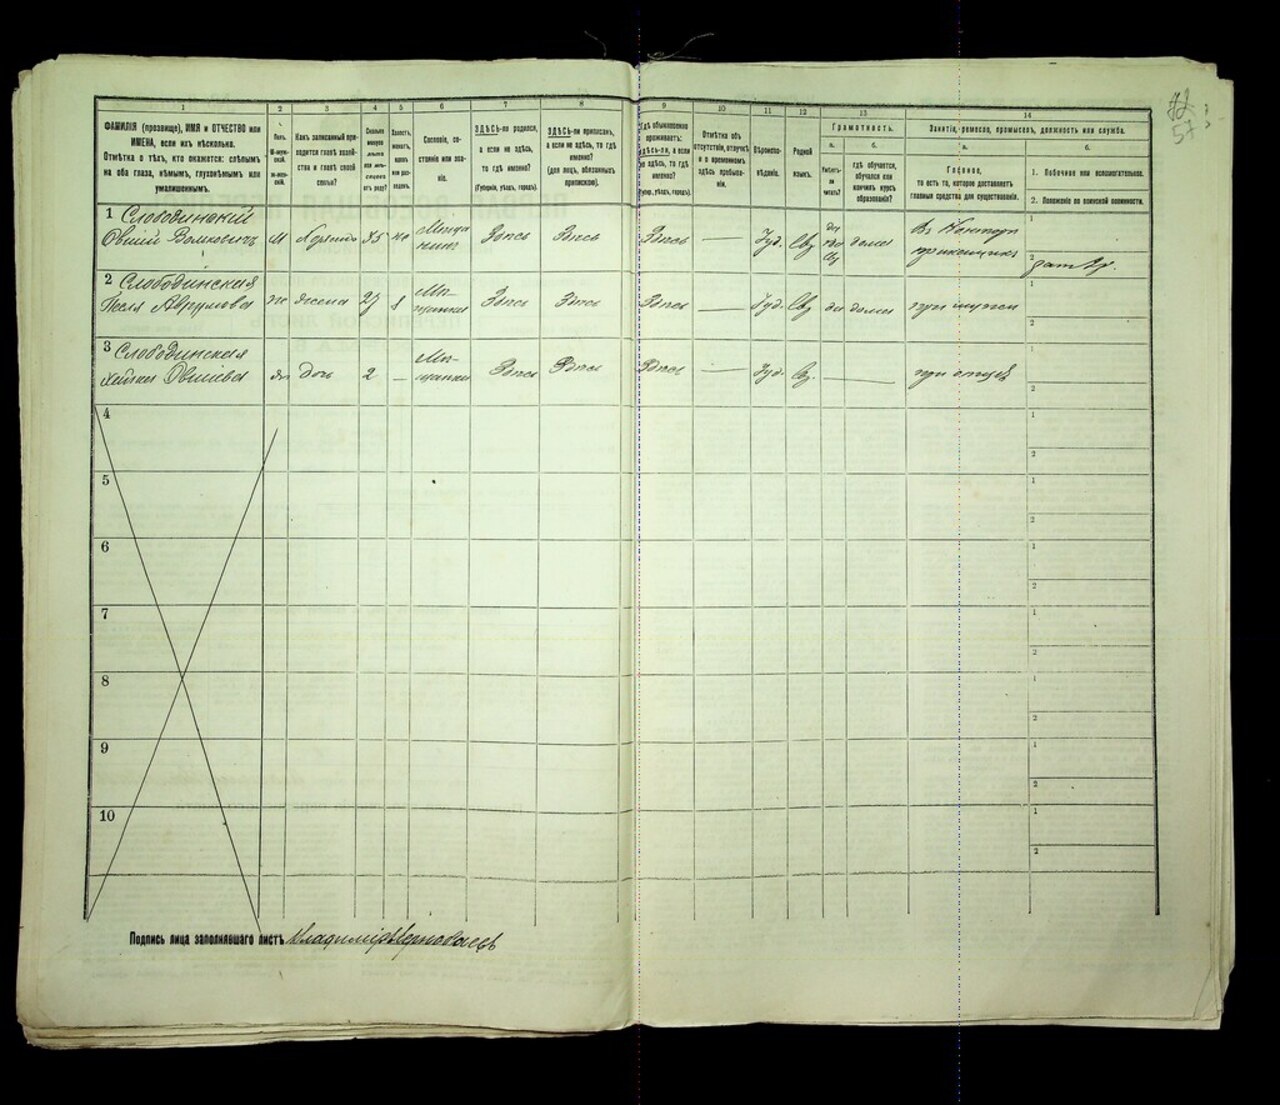 1 2 3 4 5 6 7 8 9 10 11 12 13 14
ФАМИЛІЯ (прозвище), ИМЯ и ОТЧЕСТВО или
ИМЕНА, если ихъ нѣсколько.
Отмѣтка о тѣхъ, кто окажется: слѣпымъ
на оба глаза, нѣмымъ, глухонѣмымъ или
умалишеннымъ.
Полъ.
М-муж-
ской.
Ж-жен-
скій.
Какъ записанный при-
ходится главѣ хозяй-
ства и главѣ своей
семьи?
Сколько
минуло
лѣтъ
или мѣ-
сяцевъ
отъ роду?
Холостъ,
женатъ,
вдовъ
или раз-
веденъ.
Сословіе, со-
стояніе или зва-
ніе.
ЗДѢСЬ-ли родился,
а если не здѣсь,
то гдѣ именно?
(Губернія, уѣздъ, городъ).
ЗДѢСЬ-ли приписанъ,
а если не здѣсь, то гдѣ
именно?
(для лицъ, обязанныхъ
припискою).
Гдѣ обыкновенно
проживаетъ:
здѣсь-ли, а если
не здѣсь, то гдѣ
именно?
(Губер., уѣздъ, городъ).
Отмѣтка объ
отсутствіи, отлучкѣ
и о временномъ
здѣсь пребыва-
ніи.
Вѣроиспо-
вѣданіе.
Родной
языкъ.
Грамотность.
а. б.
Умѣетъ-
ли
читать?
гдѣ обучается,
обучался или
кончилъ курсъ
образованія?
Занятіе, ремесло, промыселъ, должность или служба.
а. б.
Главное,
то есть то, которое доставляетъ
главныя средства для существованія.
1. Побочное или вспомогательное.
2. Положеніе по воинской повинности.
1 Слободинскій
Овшій Волковичъ М 35 Здѣсь Здѣсь Здѣсь — Іуд. Евр дома Въ Конторѣ приказчикъ
2 Слободинская
ж жена 27 Мѣ-щанка Здѣсь Здѣсь Здѣсь — Іуд. Евр да дома при мужѣ
3 Слободинская
Хайка Овшіева дочь 2 — Мѣ-щанка Здѣсь Здѣсь Здѣсь — Іуд. Ев. — при отцѣ
4
5
6
7
8
9
10
Подпись лица заполнявшаго листъ Владиміръ
57